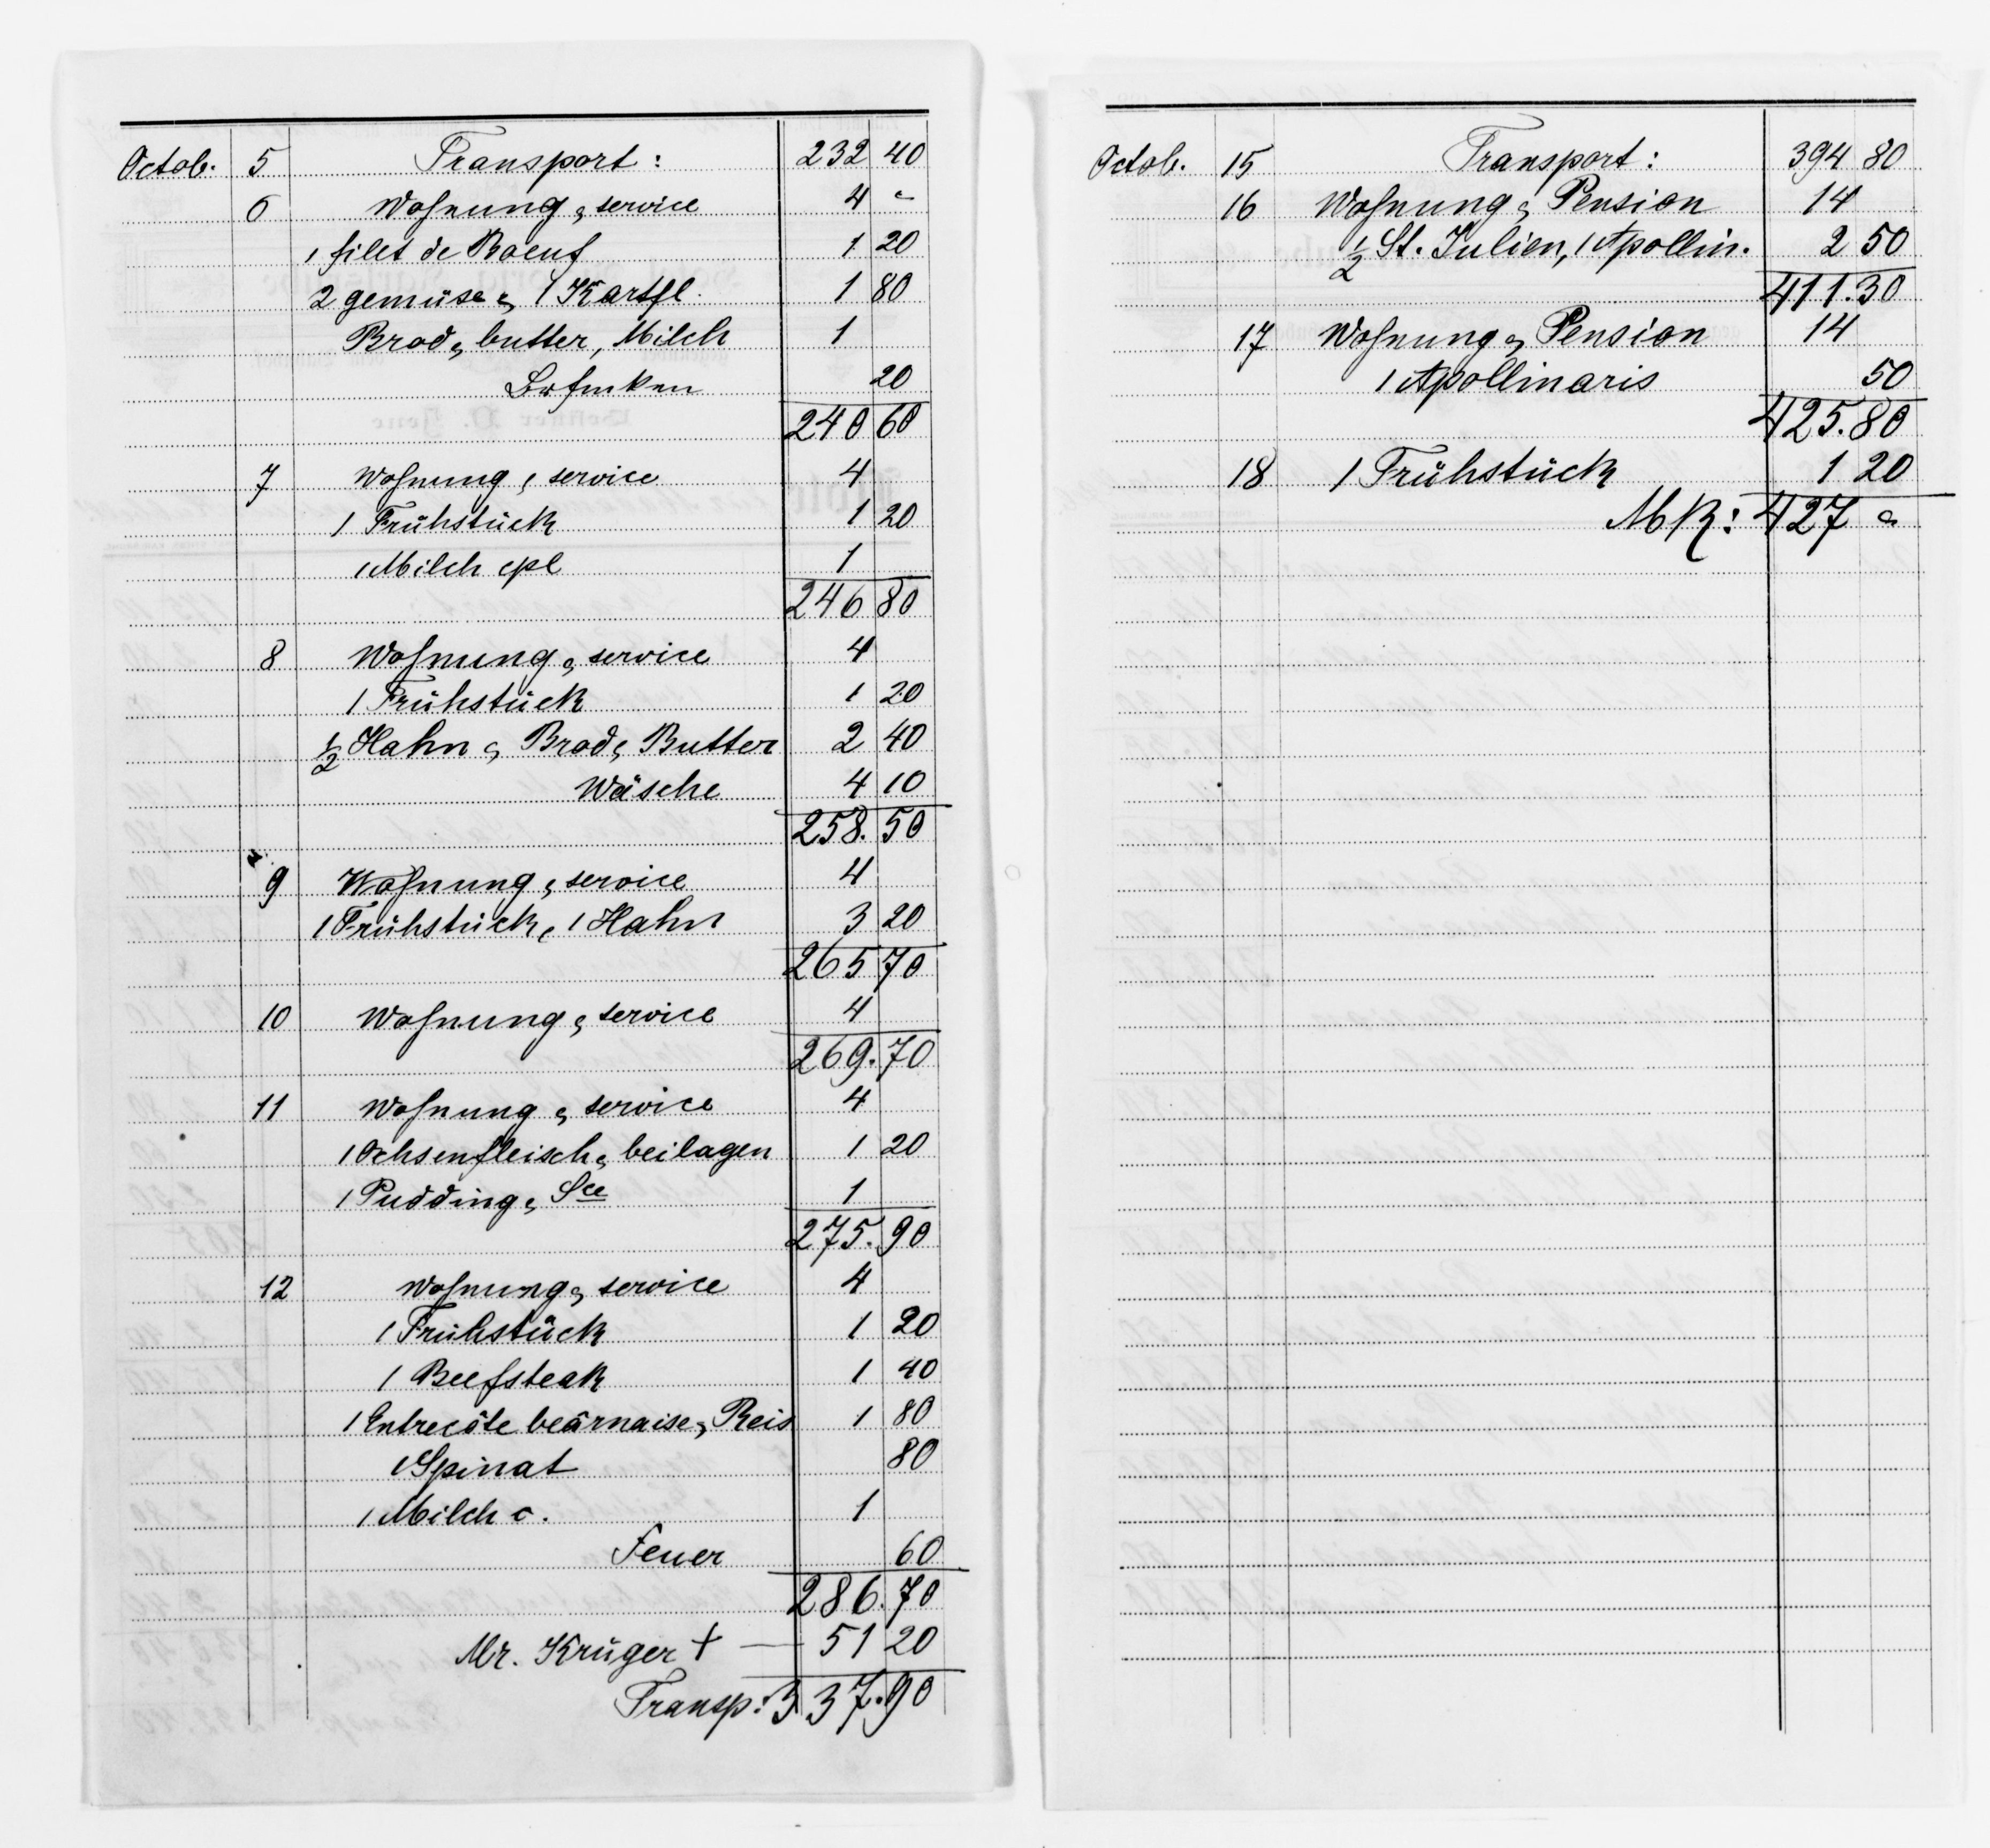 Octob. 5 Transport: 232 40
6 Wohnung & service 4 "
1 filet de Boeuf 1 20
2 gemüse & 1 Kartfl. 1 80
Brod & butter, Milch 1
20
240 60
7 Wohnung & service 4
1 Frühstück 1 20
1 Milch cpl 1
246 80
8 Wohnung & service 4
1 Frühstück 1 20
1/2 Hahn & Brod & Butter 2 40
Wäsche 4 10
258. 50
9 Wohnung & service 4
1 Frühstück & 1 Hahn 3 20
265 70
10 Wohnung & service 4
269. 70
11 Wohnung & service 4
1 Ochsenfleisch & beilagen 1 20
1 Pudding & Sce 1
275. 90
12 Wohnung & service 4
1 Frühstück 1 20
1 Beefsteak 1 40
1 Entrecôte beârnaise & Reis 1 80
1 Spinat 80
1 Milch c. 1
Feuer 60
286. 70
Mr. Krüger + — 51 20
Transp: 337. 90
Octob. 15 Transport: 394 80
16 Wohnung & Pension 14
1/2 St. Julien, 1 Apollin. 2 50
411. 30
17 Wohnung & Pension 14
1 Apollinaris 50
425. 80
18 1 Frühstück 1 20
MK: 427 "